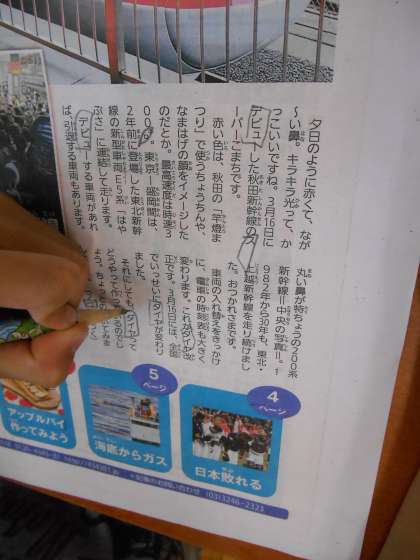 夕日のように赤くて、なが
～い鼻。キラキラ光って、か
っこいいですね。3月16日に
デビューした秋田新幹線のス
ーパーこまちです。
赤い色は、秋田の「竿燈ま
つり」で使うちょうちんや、
なまはげの顔をイメージした
のだとか。最高速度は時速3
00㌔。東京―盛岡間は、
2年前に登場した東北新幹
線の新型車両E5系「はや
ぶさ」に連結して走ります。
デビューする車両があれ
ば、引退する車両もあります。
丸い鼻が特ちょうの200系
新幹線＝中央の写真＝。1
982年から30年も、東北・
上越新幹線を走り続けまし
た。おつかれさまです。
車両の入れ替えをきっかけ
に、電車の時刻表も大きく
変わります。これがダイヤ改
正です。3月16日には、全国
でいっせいにダイヤが変わり
ました。
それにしても、ダイヤって
4
ページ
日本敗れる
5
ページ
海底からガス
アップルパイ
作ってみよう
(03)3246-2323